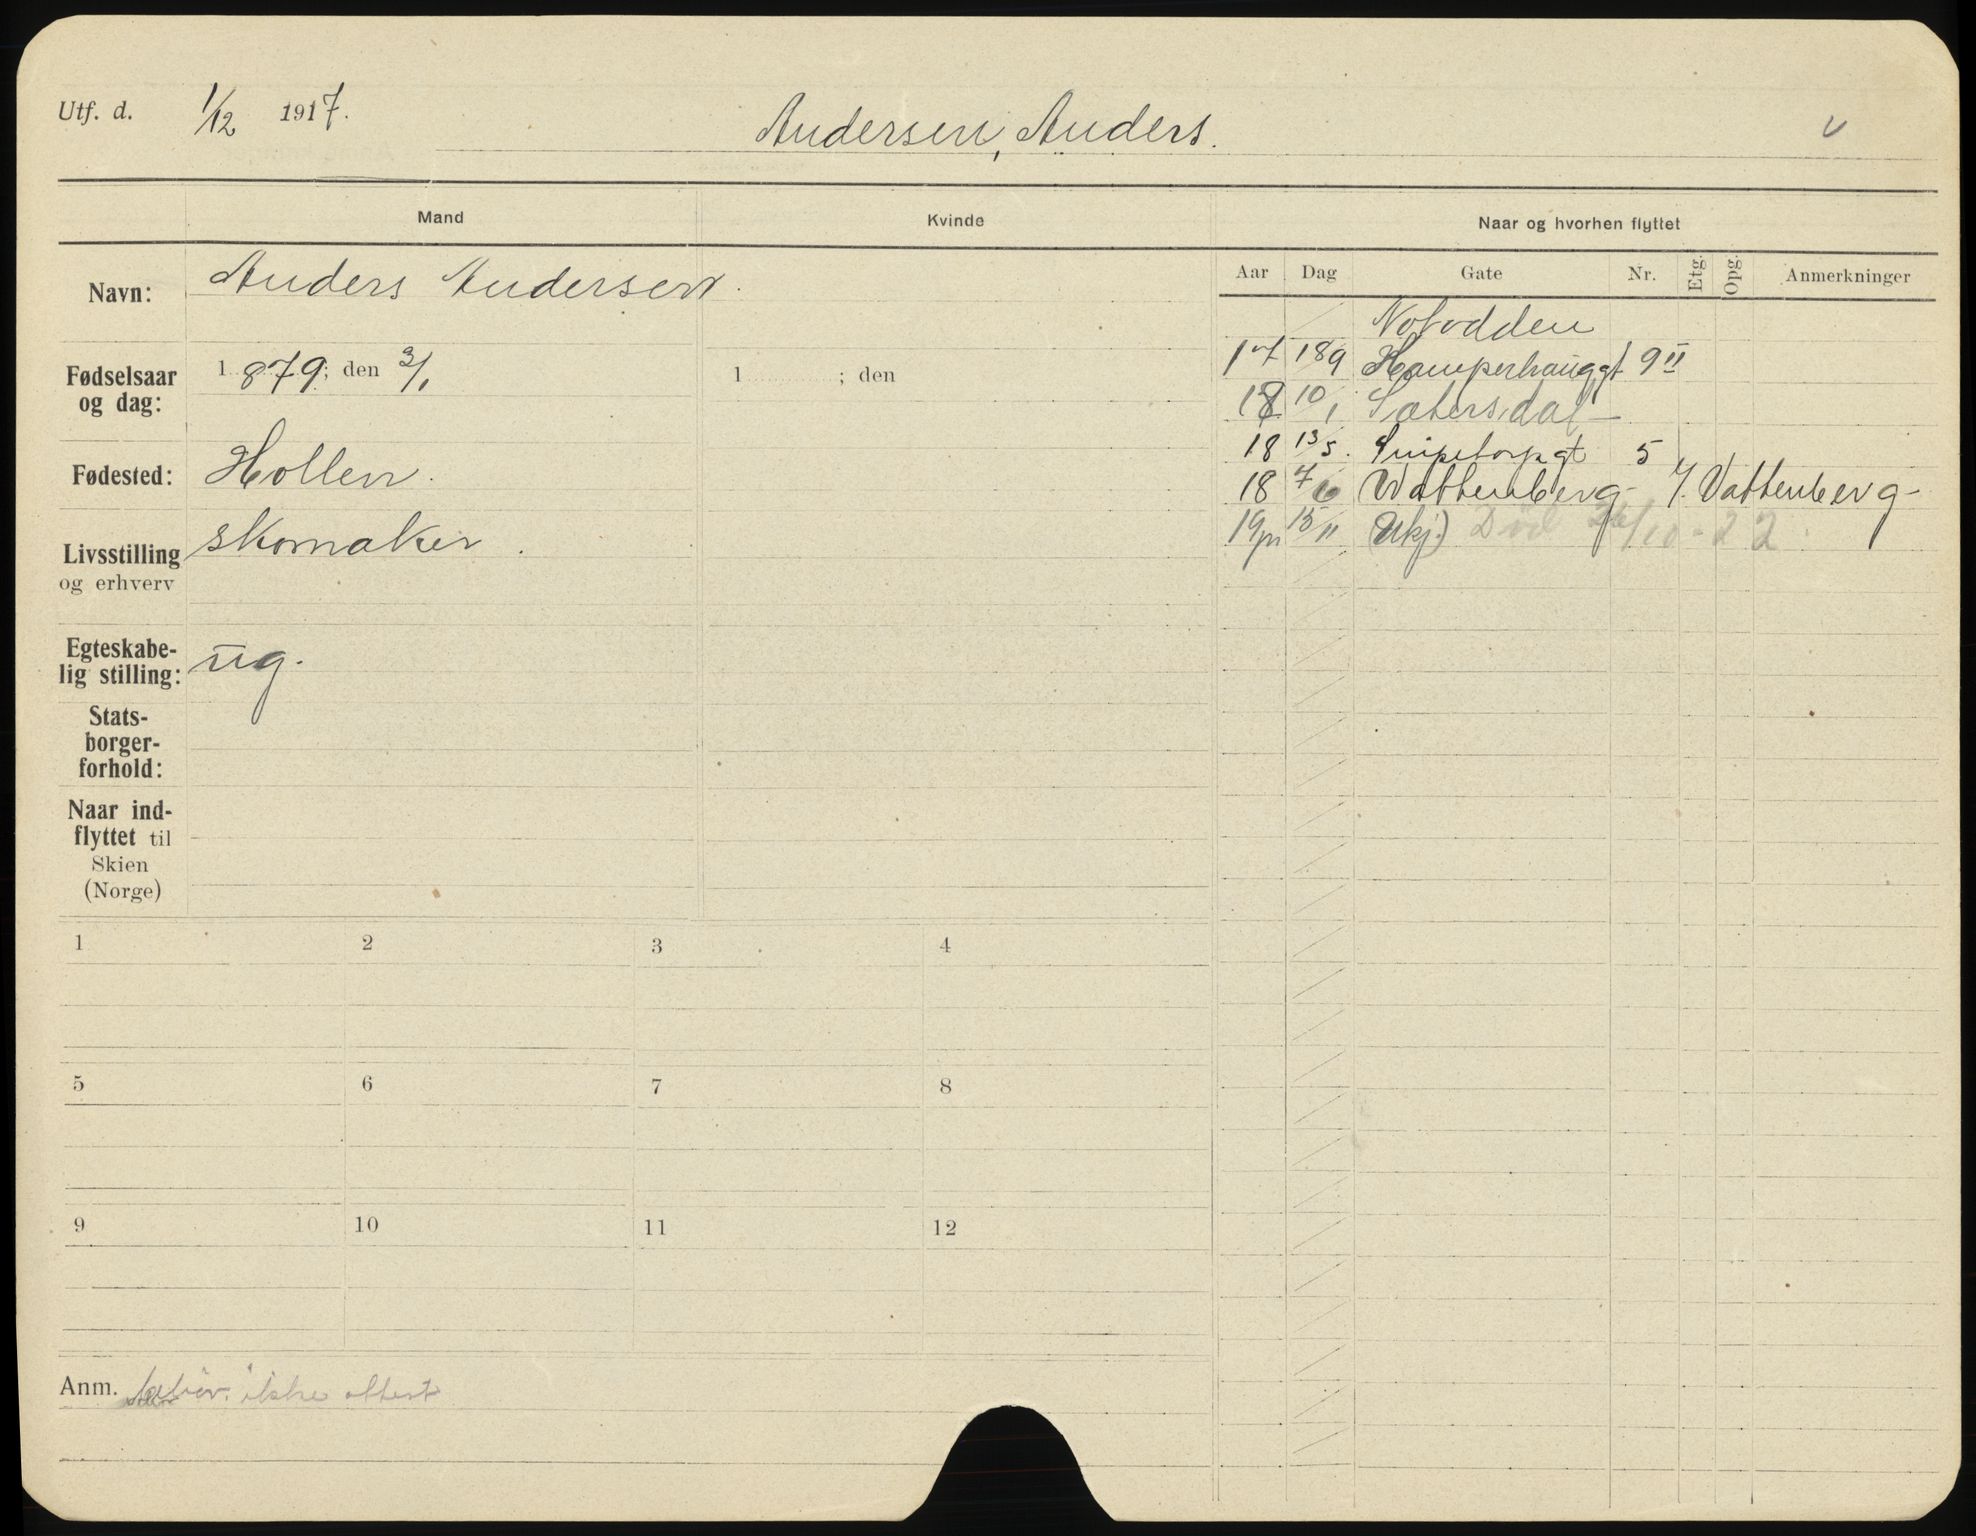 Utf. d. 1/12 1917. Andersen, Anders. v
Mand Kvinde Naar og hvorhen flyttet
Aar Dag Gate Nr. Etg. Opg. Anmerkninger
Navn: Anders Andersen.
Fødselsaar og dag: 1879; den 3/1 1 ; den
Fødested: Hollen.
Livsstilling og erhverv skomaker.
Egteskabe-
lig stilling: ug.
Stats-
borger-
forhold:
Naar ind-
flyttet til
Skien
(Norge)
Notodden
17 18/9 Hamperhauggt 9 II
18 10/1 Sætersdal
18 13/5. Snipetorpgt 5
18 7/6 Wattenberg J. Vattenberg
19 15/11 (Ukj.) Død 26/10-22
1 2 3 4
5 6 7 8
9 10 11 12
Anm. ikke attest